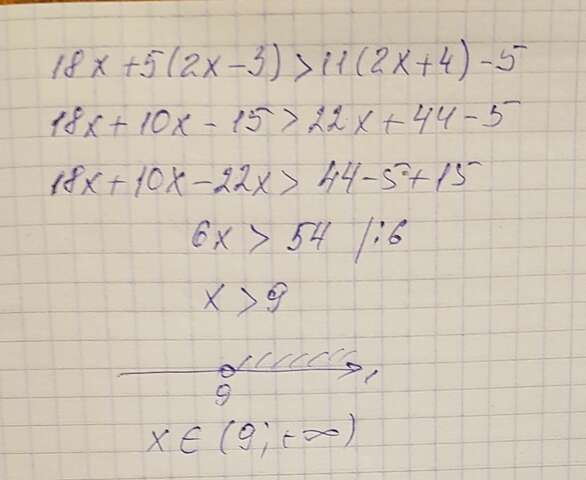 18x+5(2x-3)>11(2x+4)-5
18x+10x-15>22x+44-5
18x+10x-22x>44-5+15
6x>54 /:6
x>9
9
x∈(9;+∞)